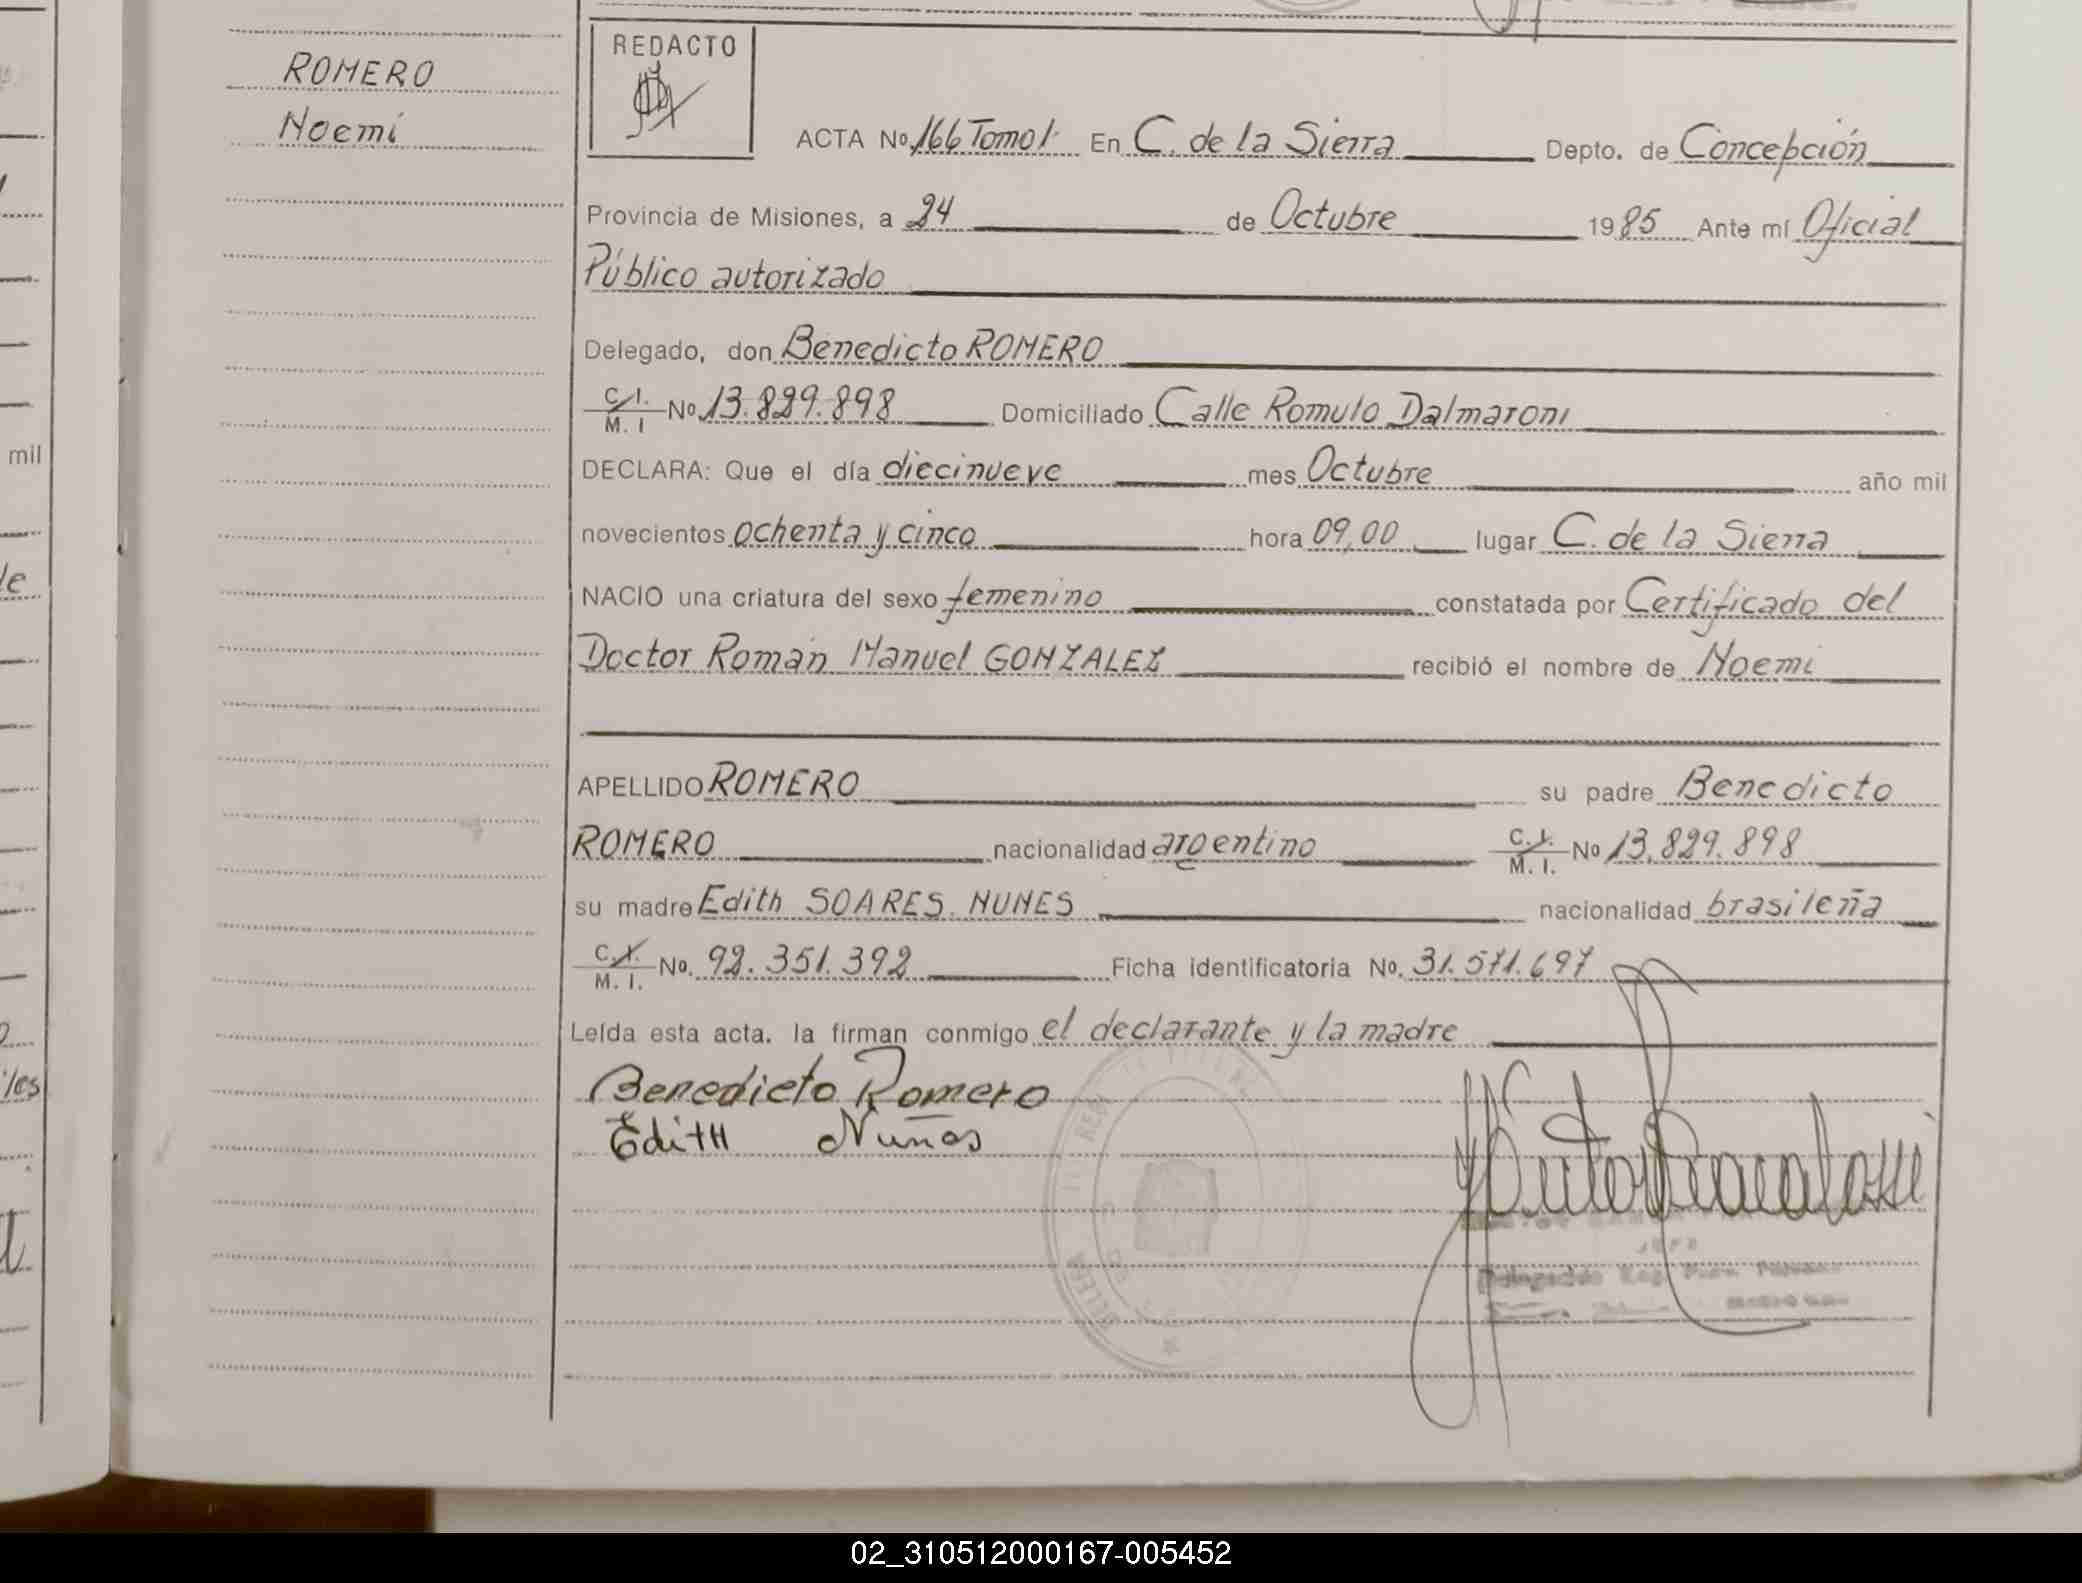 ROMERO
Noemí
REDACTO
ACTA No 166 Tomo I En C. de la Sierra Depto. de Concepción
Provincia de Misiones, a 24 de Octubre 1985 Ante mí Oficial
Público autorizado
Delegado, don Benedicto ROMERO
C. I. M. I No 13.829.898 Domiciliado Calle Romulo Dalmaroni
DECLARA: Que el día diecinueve mes Octubre año mil
novecientos ochenta y cinco hora 09,00 lugar C. de la Sierra
NACIO una criatura del sexo femenino constatada por Certificado del
Doctor Román Manuel GONZALEZ recibió el nombre de Noemí
APELLIDO ROMERO su padre Benedicto
ROMERO nacionalidad argentino C. I. M. I. No 13.829.898
su madre Edith SOARES NUNES nacionalidad brasileña
C. I. M. I. No. 92.351.392 Ficha identificatoria No. 31.571.697
Leída esta acta, la firman conmigo el declarante y la madre
Benedicto Romero
Edith Nuñas
mil
02_310512000167-005452